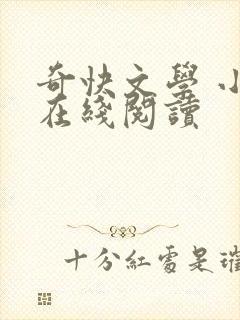 奇快文學 小
在綫閱讀
十分紅處是璀